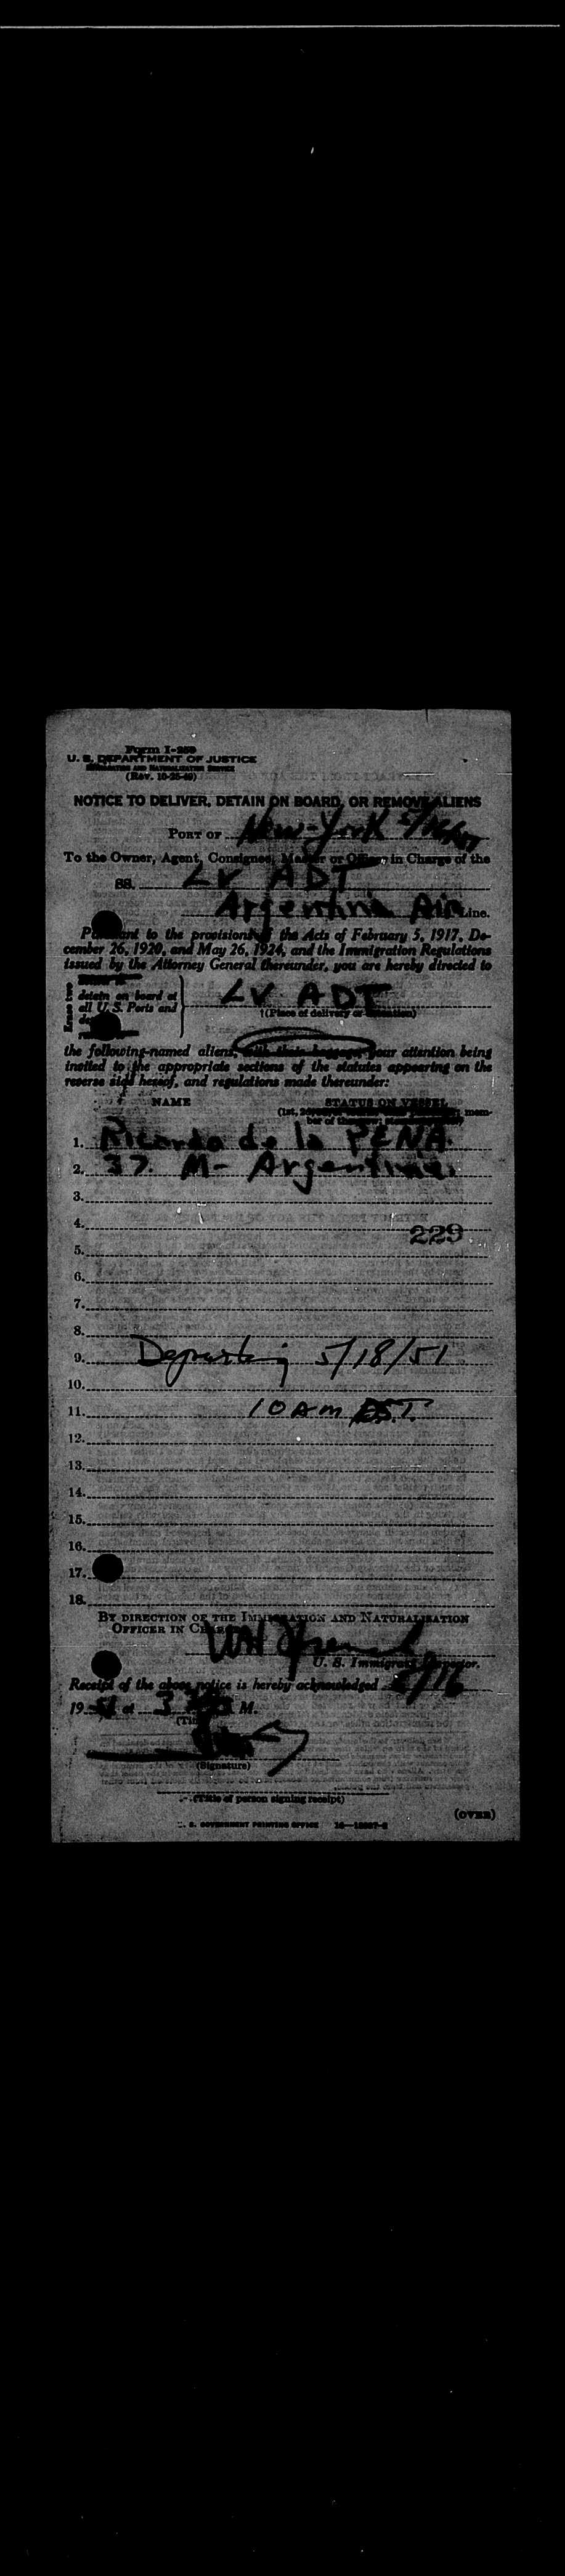 Form I-259
U. S. DEPARTMENT OF JUSTICE
IMMIGRATION AND NATURALIZATION SERVICE
(Rev. 10-25-49)
NOTICE TO DELIVER, DETAIN ON BOARD, OR REMOVE ALIENS
PORT OF New-York
To the Owner, Agent, Consignee, Master or Officer in Charge of the
SS. LV ADT
Argentina Air Line.
Pursuant to the provisions of the Acts of February 5, 1917, De-
cember 26, 1920, and May 26, 1924, and the Immigration Regulations
issued by the Attorney General thereunder, you are hereby directed to
Erase two
detain on board at
all U. S. Ports and
LV ADT
†(Place of delivery or detention)
the following-named aliens, with their baggage, your attention being
invited to the appropriate sections of the statutes appearing on the
reverse side hereof, and regulations made thereunder:
NAME STATUS ON VESSEL
(1st, mem-
ber of the
1. Ricardo de la PENA.
2. 37. M- Argentina.
3.
4.
229
5.
6.
7.
8.
9. Departing 5/18/51
10.
11. 10 AM
12.
13.
14.
15.
16.
17.
18.
BY DIRECTION OF THE IMMIGRATION AND NATURALIZATION
OFFICER IN CHARGE
U. S. Immigrant Inspector.
Receipt of the above notice is hereby acknowledged
19 51 at 3 M.
(Time)
(Signature)
(Title of person signing receipt)
(OVER)
U. S. GOVERNMENT PRINTING OFFICE